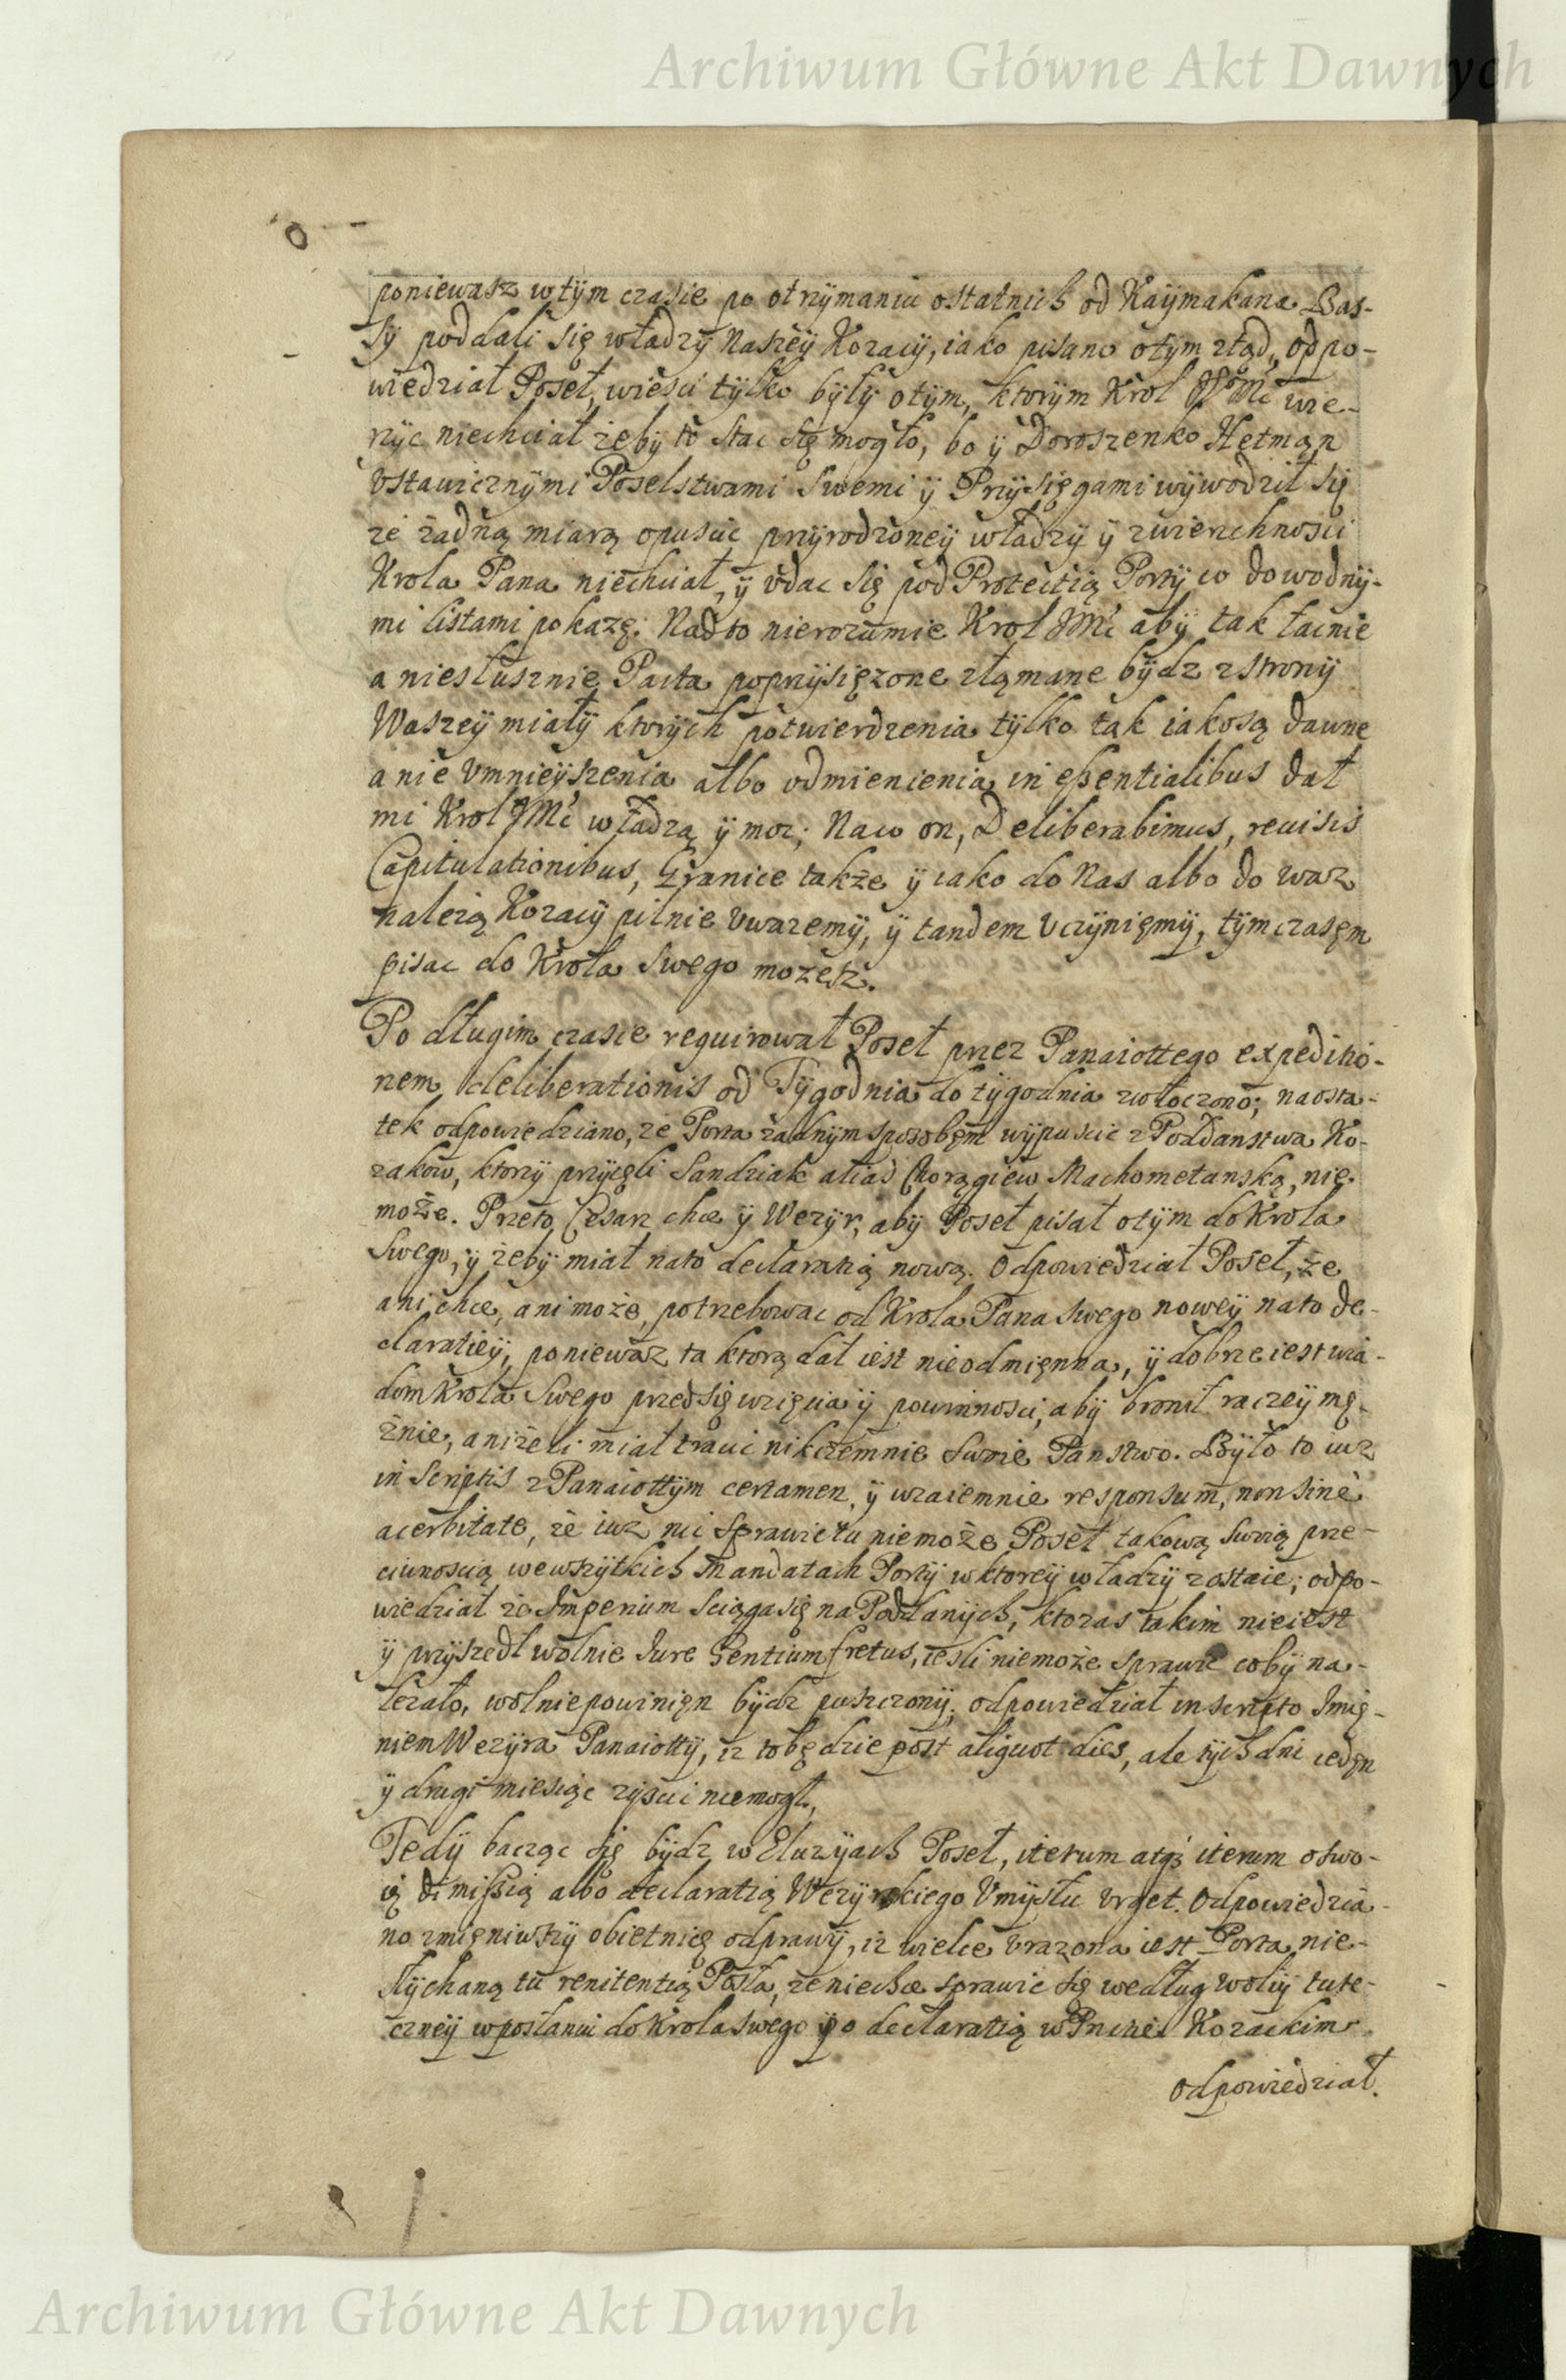 Archiwum Główne Akt Dawnych
poniewasz w tÿm czasie po otrzÿmaniu ostatnich od Kaÿmakana Bas-
sÿ poddali się władzÿ Naszeÿ Kozacÿ, iako pisano otÿm ztąd, odpo-
wiedział Poseł, wiesci tÿlko bÿłÿ otÿm, ktorÿm Krol JeoMć wie-
rzÿc niechciał żebÿ to stac się mogło, bo ÿ Doroszenko Hetman
Vstawicznÿmi Poselstwami Swemi ÿ Przÿsięgami wÿwodził się
że żadną miarą opuscic przÿrodzoneÿ władzÿ ÿ zwierzchnosci
Krola Pana niechciał, ÿ vdac się pod Protectią Portÿ co dowodnÿ-
mi listami pokażę. Nadto nierozumie Krol JMć abÿ tak łacnie
a niesłusznie Pacta poprzÿsiężone złamane bÿdz z stronÿ
Waszeÿ miałÿ ktorÿch potwierdzenia tÿlko tak iako są dawne
a nie Vmnieÿszenia albo odmienienia in eßentialibus dał
mi Krol JMć władzą ÿ moc; Na co on, Deliberabimus, reuisis
Capitulationibus, Granice także ÿ iako do Nas albo do was
należą Kozacÿ pilnie Vważemÿ, ÿ tandem Vczÿnięmÿ, tÿm czasęm
pisac do Krola Swego możesz.
Po długim czasie requirował Poseł przez Panaiottego expeditio-
nem deliberationis od Tÿgodnia do tÿgodnia zwłoczono; naosta-
tek odpowiedziano, że Porta żadnÿm sposobęm wÿpuscic z Poddanstwa Ko-
zakow, ktorzÿ przÿięli Sandziak alias Chorągiew Machometanską, nie
może. Przeto Cesarz chce ÿ Wezÿr, abÿ Poseł pisał otÿm do Krola
Swego, ÿ żebÿ miał nato declaratią nową. Odpowiedział Poseł, że
ani chce, ani może, potrzebowac od Krola Pana swego noweÿ na to de-
claratieÿ, ponieważ ta ktorą dał iest nieodmięnna, ÿ dobrze iest wia-
dom Krola Swego przedsięwzięcia ÿ powinnosci, abÿ bronił raczeÿ mę-
żnie, aniżeli miał tracic nikczemnie Swoie Panstwo. Bÿło to iuz
in Scriptis z Panaiottÿm certamen, ÿ wzaiemnie responsum, non sine
acerbitate, że iuz nic sprawic tu niemoże Poseł takową swoią prze-
ciwnoscią wewszÿtkich Mandatach Portÿ w ktoreÿ władzÿ zostaie; odpo-
wiedział że Imperium sciąga się na Poddanÿch, ktoras takim nieiest
ÿ przÿszedł wolnie Iure Gentium fretus, iesli niemoże sprawic cobÿ na-
leżało, wolnie powinięn bÿdz puszczonÿ; odpowiedział in scripto Imię-
niem Wezÿra Panaiottÿ, iz to będzie post aliquot dies, ale tÿch dni iedęn
ÿ drugi miesiąc zÿscic niemogł,
Tedÿ bacząc się bÿdz w Eluzÿach Poseł, iterum atq; iterum o swo-
ią dimißią albo declaratią Wezÿrskiego Vmÿsłu vrget. Odpowiedzia-
no zmięniwszÿ obietnicę odprawÿ, iz wielce vrażona iest Porta nie-
słÿchaną tu renitentią Posła, że niechce sprawic się według wolÿ tute-
czneÿ w posłaniu do Krola Swego ÿ o declaratią w Punkcie Kozackim.
odpowiedział.
Archiwum Główne Akt Dawnych